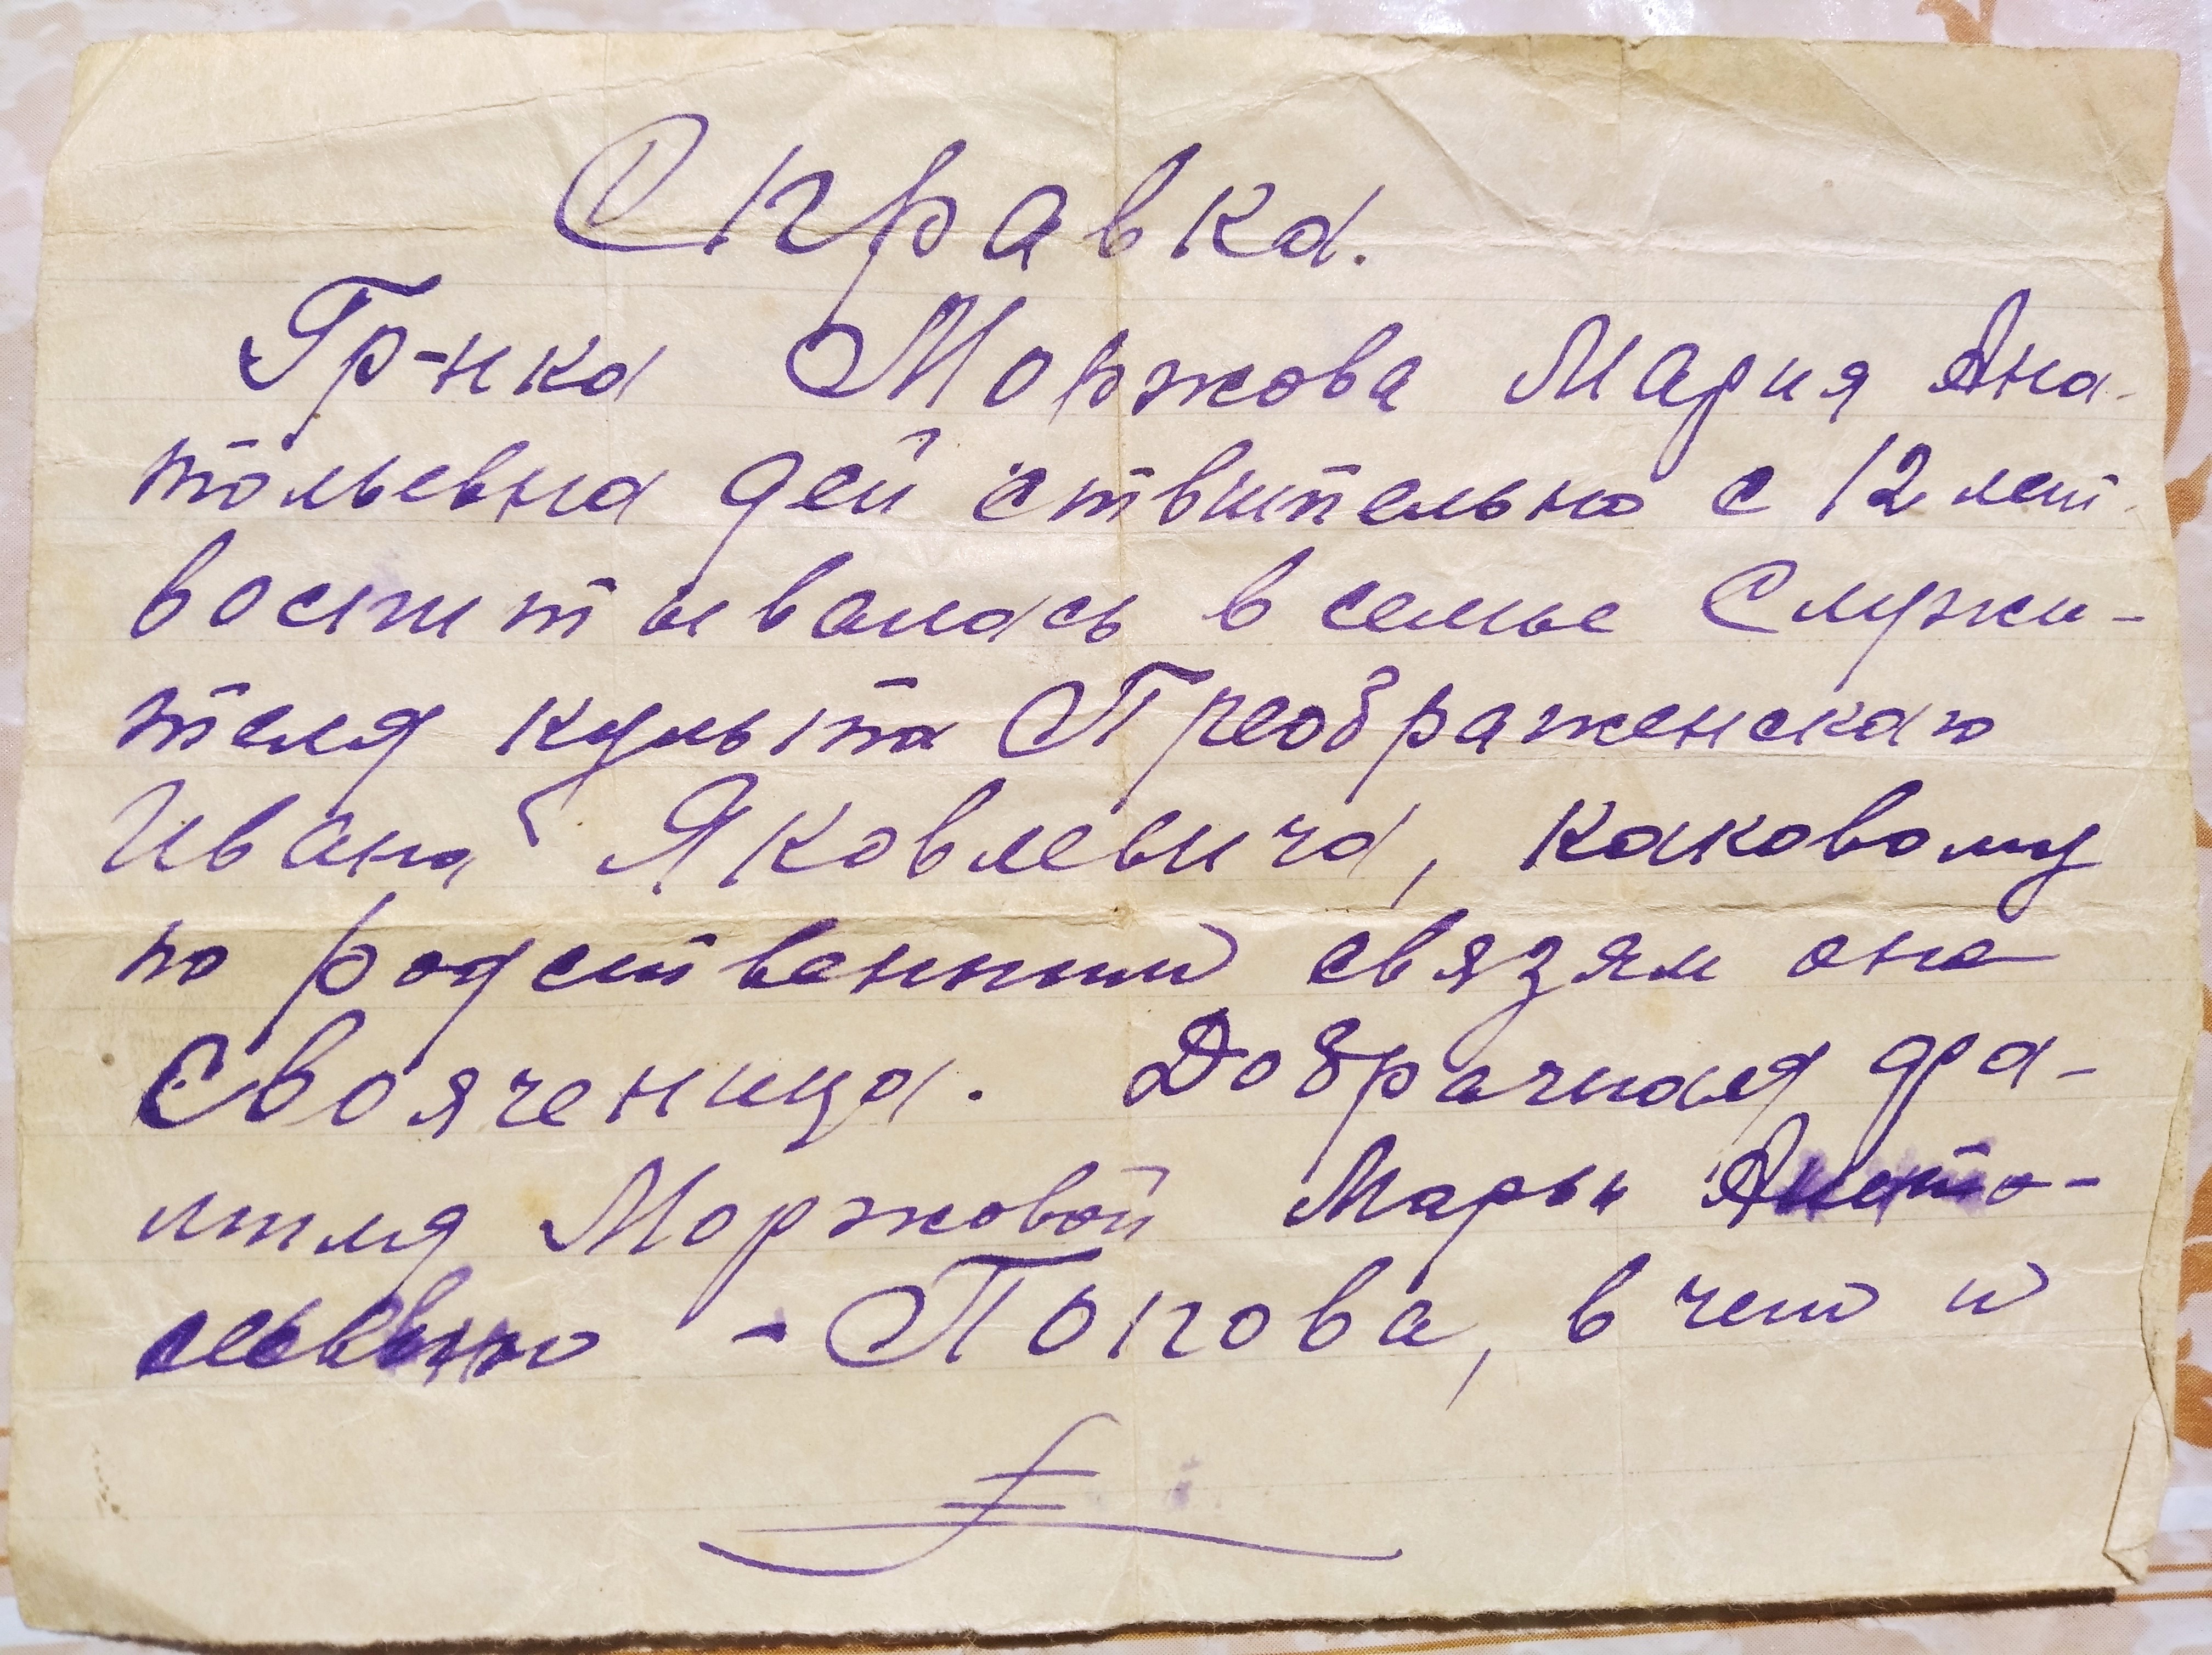 Справка.
Гр-нка Моржова Мария Ана-
тольевна действительно с 12 лет
воспитывалась в семье Служи-
теля культа Преображенскаго
Ивана Яковлевича, каковому
по родственным связям она
Свояченица. Добрачная фа-
милия Моржовой Марьи Анато-
льевны - Попова, в чем и